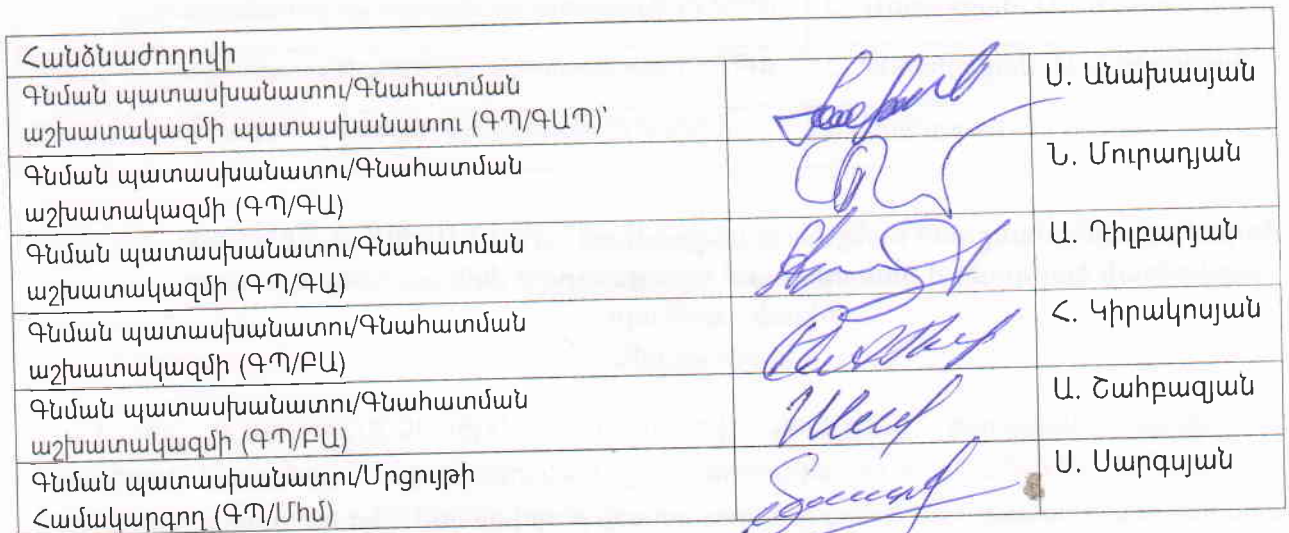 Հանձնաժողովի
Գնման պատասխանատու/Գնահատման
աշխատակազմի պատասխանատու (ԳՊ/ԳԱՊ)՝
Ս. Անախասյան
Գնման պատասխանատու/Գնահատման
աշխատակազմի (ԳՊ/ԳԱ)
Ն. Մուրադյան
Գնման պատասխանատու/Գնահատման
աշխատակազմի (ԳՊ/ԳԱ)
Ա. Դիլբարյան
Գնման պատասխանատու/Գնահատման
աշխատակազմի (ԳՊ/ԲԱ)
Հ. Կիրակոսյան
Գնման պատասխանատու/Գնահատման
աշխատակազմի (ԳՊ/ԲԱ)
Ա. Շահբազյան
Գնման պատասխանատու/Մրցույթի
Համակարգող (ԳՊ/Մհմ)
Ս. Սարգսյան